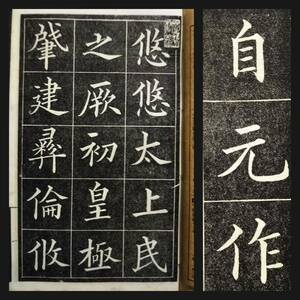 悠悠太上民
之厥初皇極
肇建彝倫攸
自元作